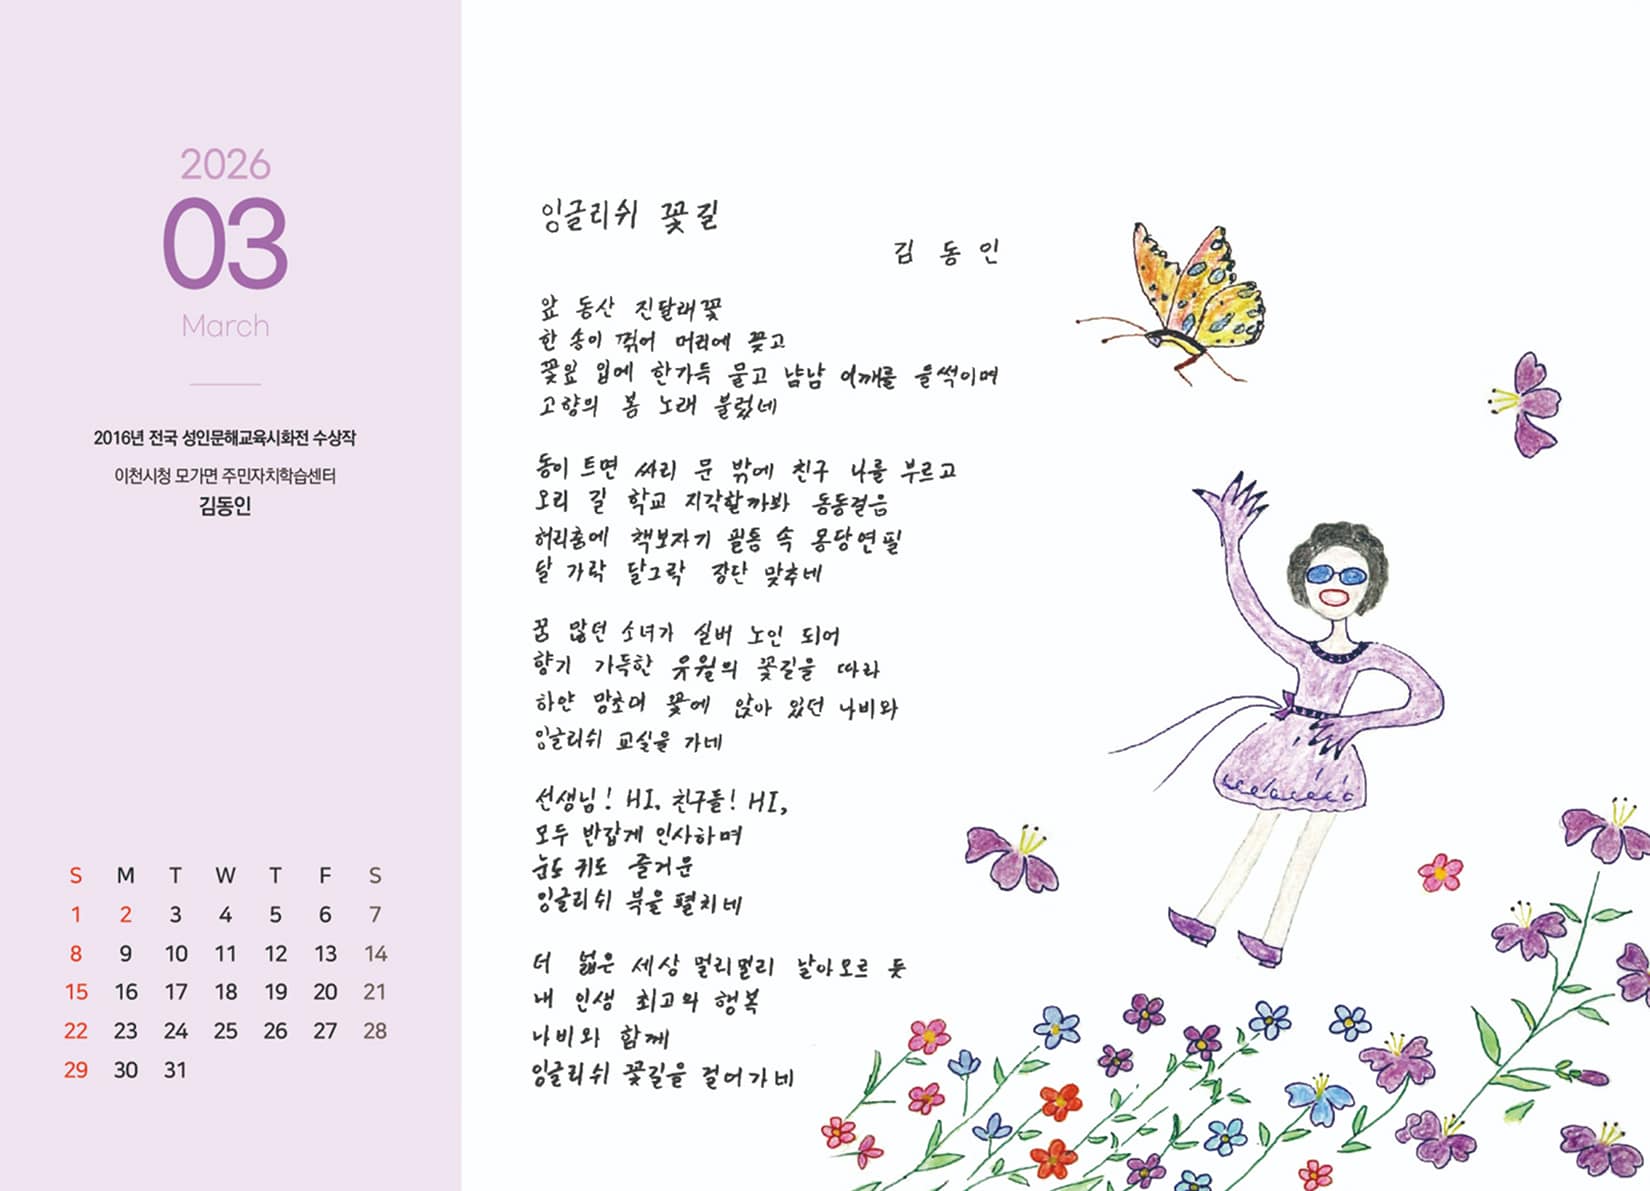 2026
03
March
2016년 전국 성인문해교육시화전 수상작
이천시청 모가면 주민자치학습센터
김동인
S M T W T F S
1 2 3 4 5 6 7
8 9 10 11 12 13 14
15 16 17 18 19 20 21
22 23 24 25 26 27 28
29 30 31
잉글리쉬 꽃길
김 동 인
앞 동산 진달래꽃
한 송이 꺾어 머리에 꽂고
꽃잎 입에 한가득 물고 냠냠 어깨를 을썩이며
고향의 봄 노래 불렀네
동이 트면 싸리 문 밖에 친구 나를 부르고
오리 길 학교 지각할까봐 동동걸음
허리춤에 책보자기 필통 속 몽당연필
달 가락 달그락 장단 맞추네
꿈 많던 소녀가 실버 노인 되어
향기 가득한 유월의 꽃길을 따라
하얀 망초대 꽃에 앉아 있던 나비와
잉글리쉬 교실을 가네
선생님! HI, 친구들! HI,
모두 반갑게 인사하며
눈도 귀도 즐거운
잉글리쉬 북을 펼치네
더 넓은 세상 멀리멀리 날아오르 듯
내 인생 최고의 행복
나비와 함께
잉글리쉬 꽃길을 걸어가네